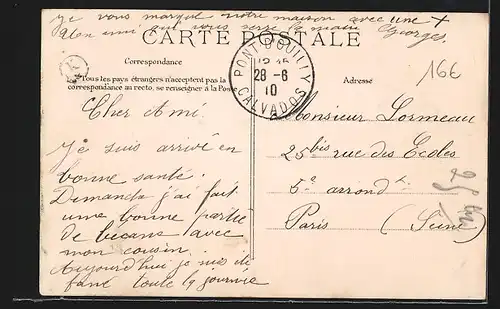 Je vous marque notre maison avec une +
Ton ami qui vous serre la main Georges
CARTE POSTALE
Correspondance
Tous les pays étrangers n'acceptent pas la
correspondance au recto, se renseigner à la Poste
Adresse
PONT D'OUILLY
28-6
10
CALVADOS
16€
Cher Ami
Je suis arrivé en
bonne santé.
Dimanche j'ai fait
une bonne partie
de bécane avec
mon cousin.
Aujourd'hui je
toute la journée
Monsieur Lormeau
25bis rue des Ecoles
5e arrondt
Paris (Seine)